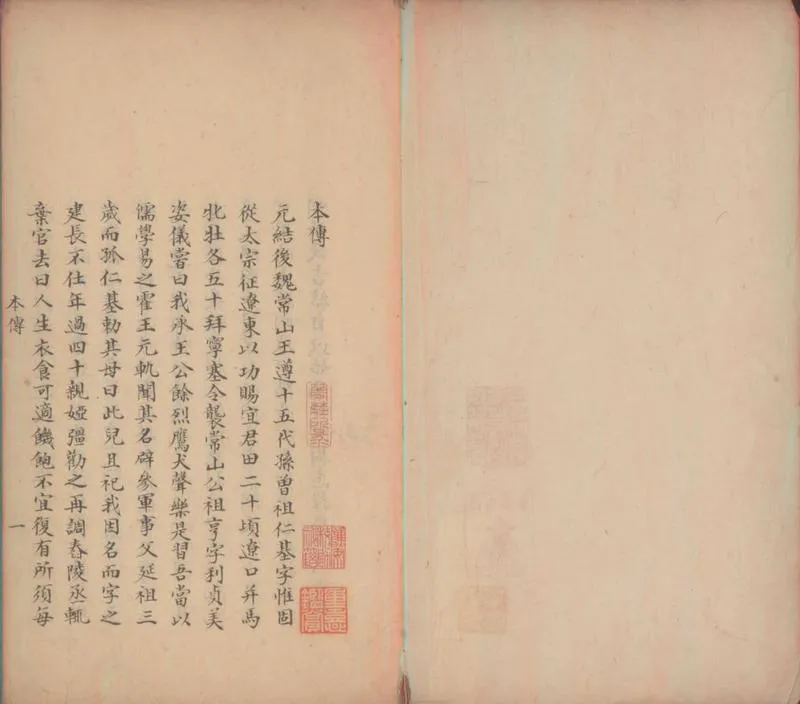 本傳
元結後魏常山王遵十五代孫曾祖仁基字惟固
從太宗征遼東以功賜宜君田二十頃遼口并馬
牝牡各五十拜寧塞令襲常山公祖亨字利貞美
姿儀嘗曰我承王公餘烈鷹犬聲樂是習吾當以
儒學易之霍王元軌聞其名辟參軍事父延祖三
歲而孤仁基勅其母曰此兒且祀我因名而字之
建長不仕年過四十親婭彊勸之再調舂陵丞輒
棄官去曰人生衣食可適饑飽不宜復有所須每
本傳
一